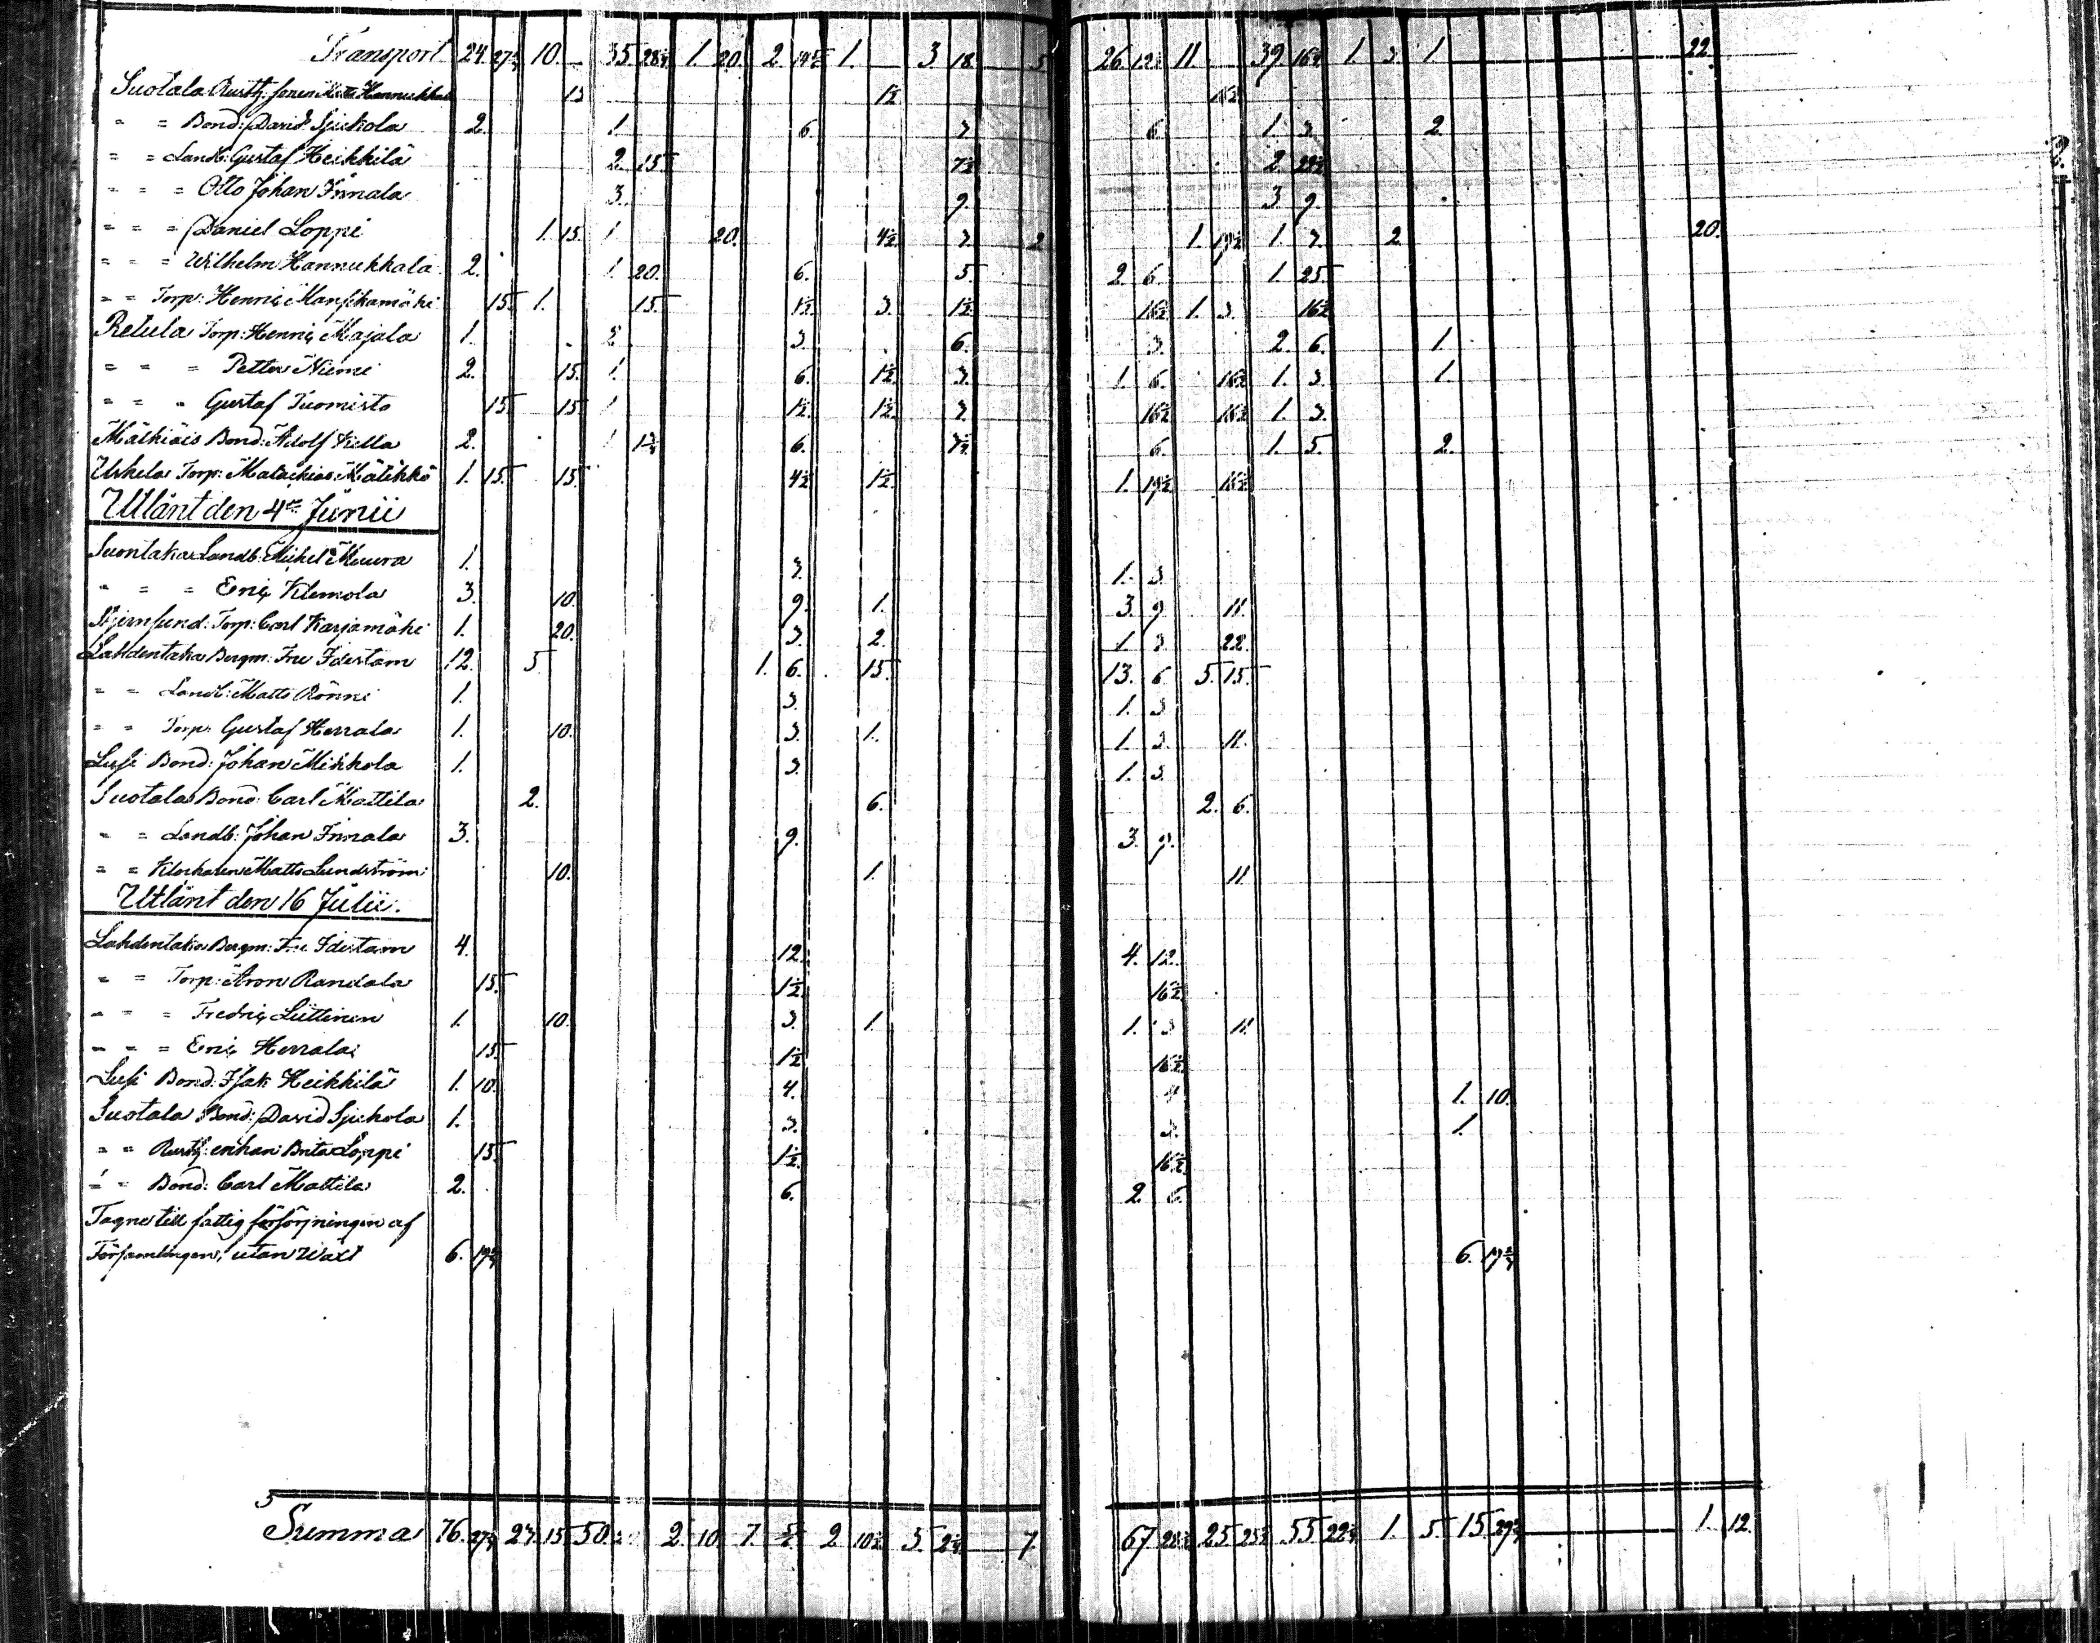 Transport 24. 27¾ 10. 35. 28¼ 1. 20. 2. 14½ 1. 3 18. 5. 26. 12¼ 11. 39. 16¼ 1. 5. 1. 22.
Suotala Rustb: sonen Hannukkala 15 1½ 16½
" " Bond: David Sjukola 2. 1. 6. 3. 6. 1. 3. 2.
" " Landb: Gustaf Heikkilä 2. 15. 7½ 2. 22½
" " " Otto Johan Innala 3. 9. 3. 9.
" " " Daniel Loppi 1. 15. 1. 20. 4½ 3. 2. 1. 19½ 1. 3. 2. 20.
" " " Wilhelm Hannukkala 2. 1. 20. 6. 5. 2. 6. 1. 25.
" " Torp: Henric Mansikamäki 15. 1. 15. 1½ 3. 1½ 16½ 1. 3. 16½
Retula Torp: Henric Majala 1. 2. 3. 6. 3. 2. 6. 1.
" " " Petter Niemi 2. 15. 1. 6. 1½ 3. 1. 6. 16½ 1. 3. 1.
" " " Gustaf Tuomisto 15. 15. 1. 1½ 1½ 3. 16½ 16½ 1. 3.
Mälkiäis Bond: Adolf Killa 2. 1. 6. 6. 1. 5. 2.
Urkela Torp: Matikkö 1. 15. 15. 4½ 1½ 1. 19½ 16½
Utlånt den 4de Junii
Suontaka Landb: Mickel Muura 1. 3. 1. 3.
" " " Eric Klemola 3. 10. 9. 1. 3. 9. 11.
Stjernsund: Torp: Carl Karjamäki 1. 20. 3. 2. 1. 3. 22.
Lahdentaka Bergm: Fru Idestam 12. 5. 1. 6. 15. 13. 6. 5. 15.
" " Landb: Matts Rönni 1. 3. 1. 3
" " Torp: Gustaf Herrala 1. 10. 3. 1. 1. 3. 11.
Lusi Bond: Johan Mikkola 1. 3. 1. 3.
Suotala Bond: Carl Mattila 2. 6. 2. 6.
" " Landb: Johan Innala 3. 9. 3. 9.
" " Klockaren Matts Lundström 10. 1. 11.
Utlånt den 16 Julii.
Lahdentaka Bergm: Fru Idestam 4. 12. 4. 12.
" " Torp: Aron Randala 15. 1½ 16½
" " " Fredric Liittinen 1. 10. 3. 1. 1. 3 11.
" " " Eric Herrala 15. 1½ 16½
Lusi Bond: Isak Heikkilä 1. 10. 4. 4 1. 10.
Suotala Bond: David Sjukola 1. 3. 3. 1.
" " Rustb: enkan Brita Loppi 15. 1½ 16½
" " Bond: Carl Mattila 2. 6. 2. 6.
Tagne till fattig försörjningen af
Församlingen, utan Wäxt 6. 19¾ 6. 19¾
Summa 76. 27¾ 27. 15. 50. 2. 10. 7. 2. 10½ 5. 2¼ 7. 67 28¾ 25. 25½ 55. 22¾ 1. 5. 15. 29¾ 1. 12.